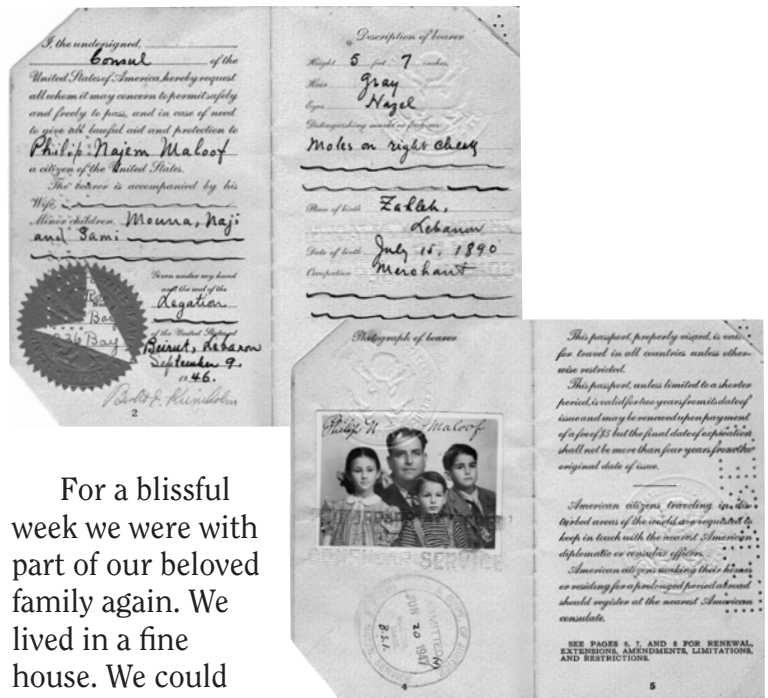 I, the undersigned,
Consul of the
United States of America, hereby request
all whom it may concern to permit safely
and freely to pass, and in case of need
to give all lawful aid and protection to
Philip Najem Maloof
a citizen of the United States.
The bearer is accompanied by his
Wife,
Minor children, Mouna, Naji
and Sami
Given under my hand
and the seal of the
Legation
of the United States at
Beirut, Lebanon
September 9,
1946.
2
Description of bearer
Height 5 feet 7 inches
Hair Gray
Eyes Hazel
Distinguishing marks or features
Moles on right cheek
Place of birth Zahleh,
Lebanon
Date of birth July 15, 1890
Occupation Merchant
Photograph of bearer
Philip N Maloof
SERVICE
ADMITTED
JUN 20 1947
4
This passport, properly visaed, is valid
for travel in all countries unless other-
wise restricted.
This passport, unless limited to a shorter
period, is valid for two years from its date of
issue and may be renewed upon payment
of a fee of $5 but the final date of expiration
shall not be more than four years from the
original date of issue.
American citizens traveling in dis-
turbed areas of the world are requested to
keep in touch with the nearest American
diplomatic or consular officers.
American citizens making their homes
or residing for a prolonged period abroad
should register at the nearest American
consulate.
SEE PAGES 6, 7, AND 8 FOR RENEWAL,
EXTENSIONS, AMENDMENTS, LIMITATIONS,
AND RESTRICTIONS.
5
For a blissful
week we were with
part of our beloved
family again. We
lived in a fine
house. We could